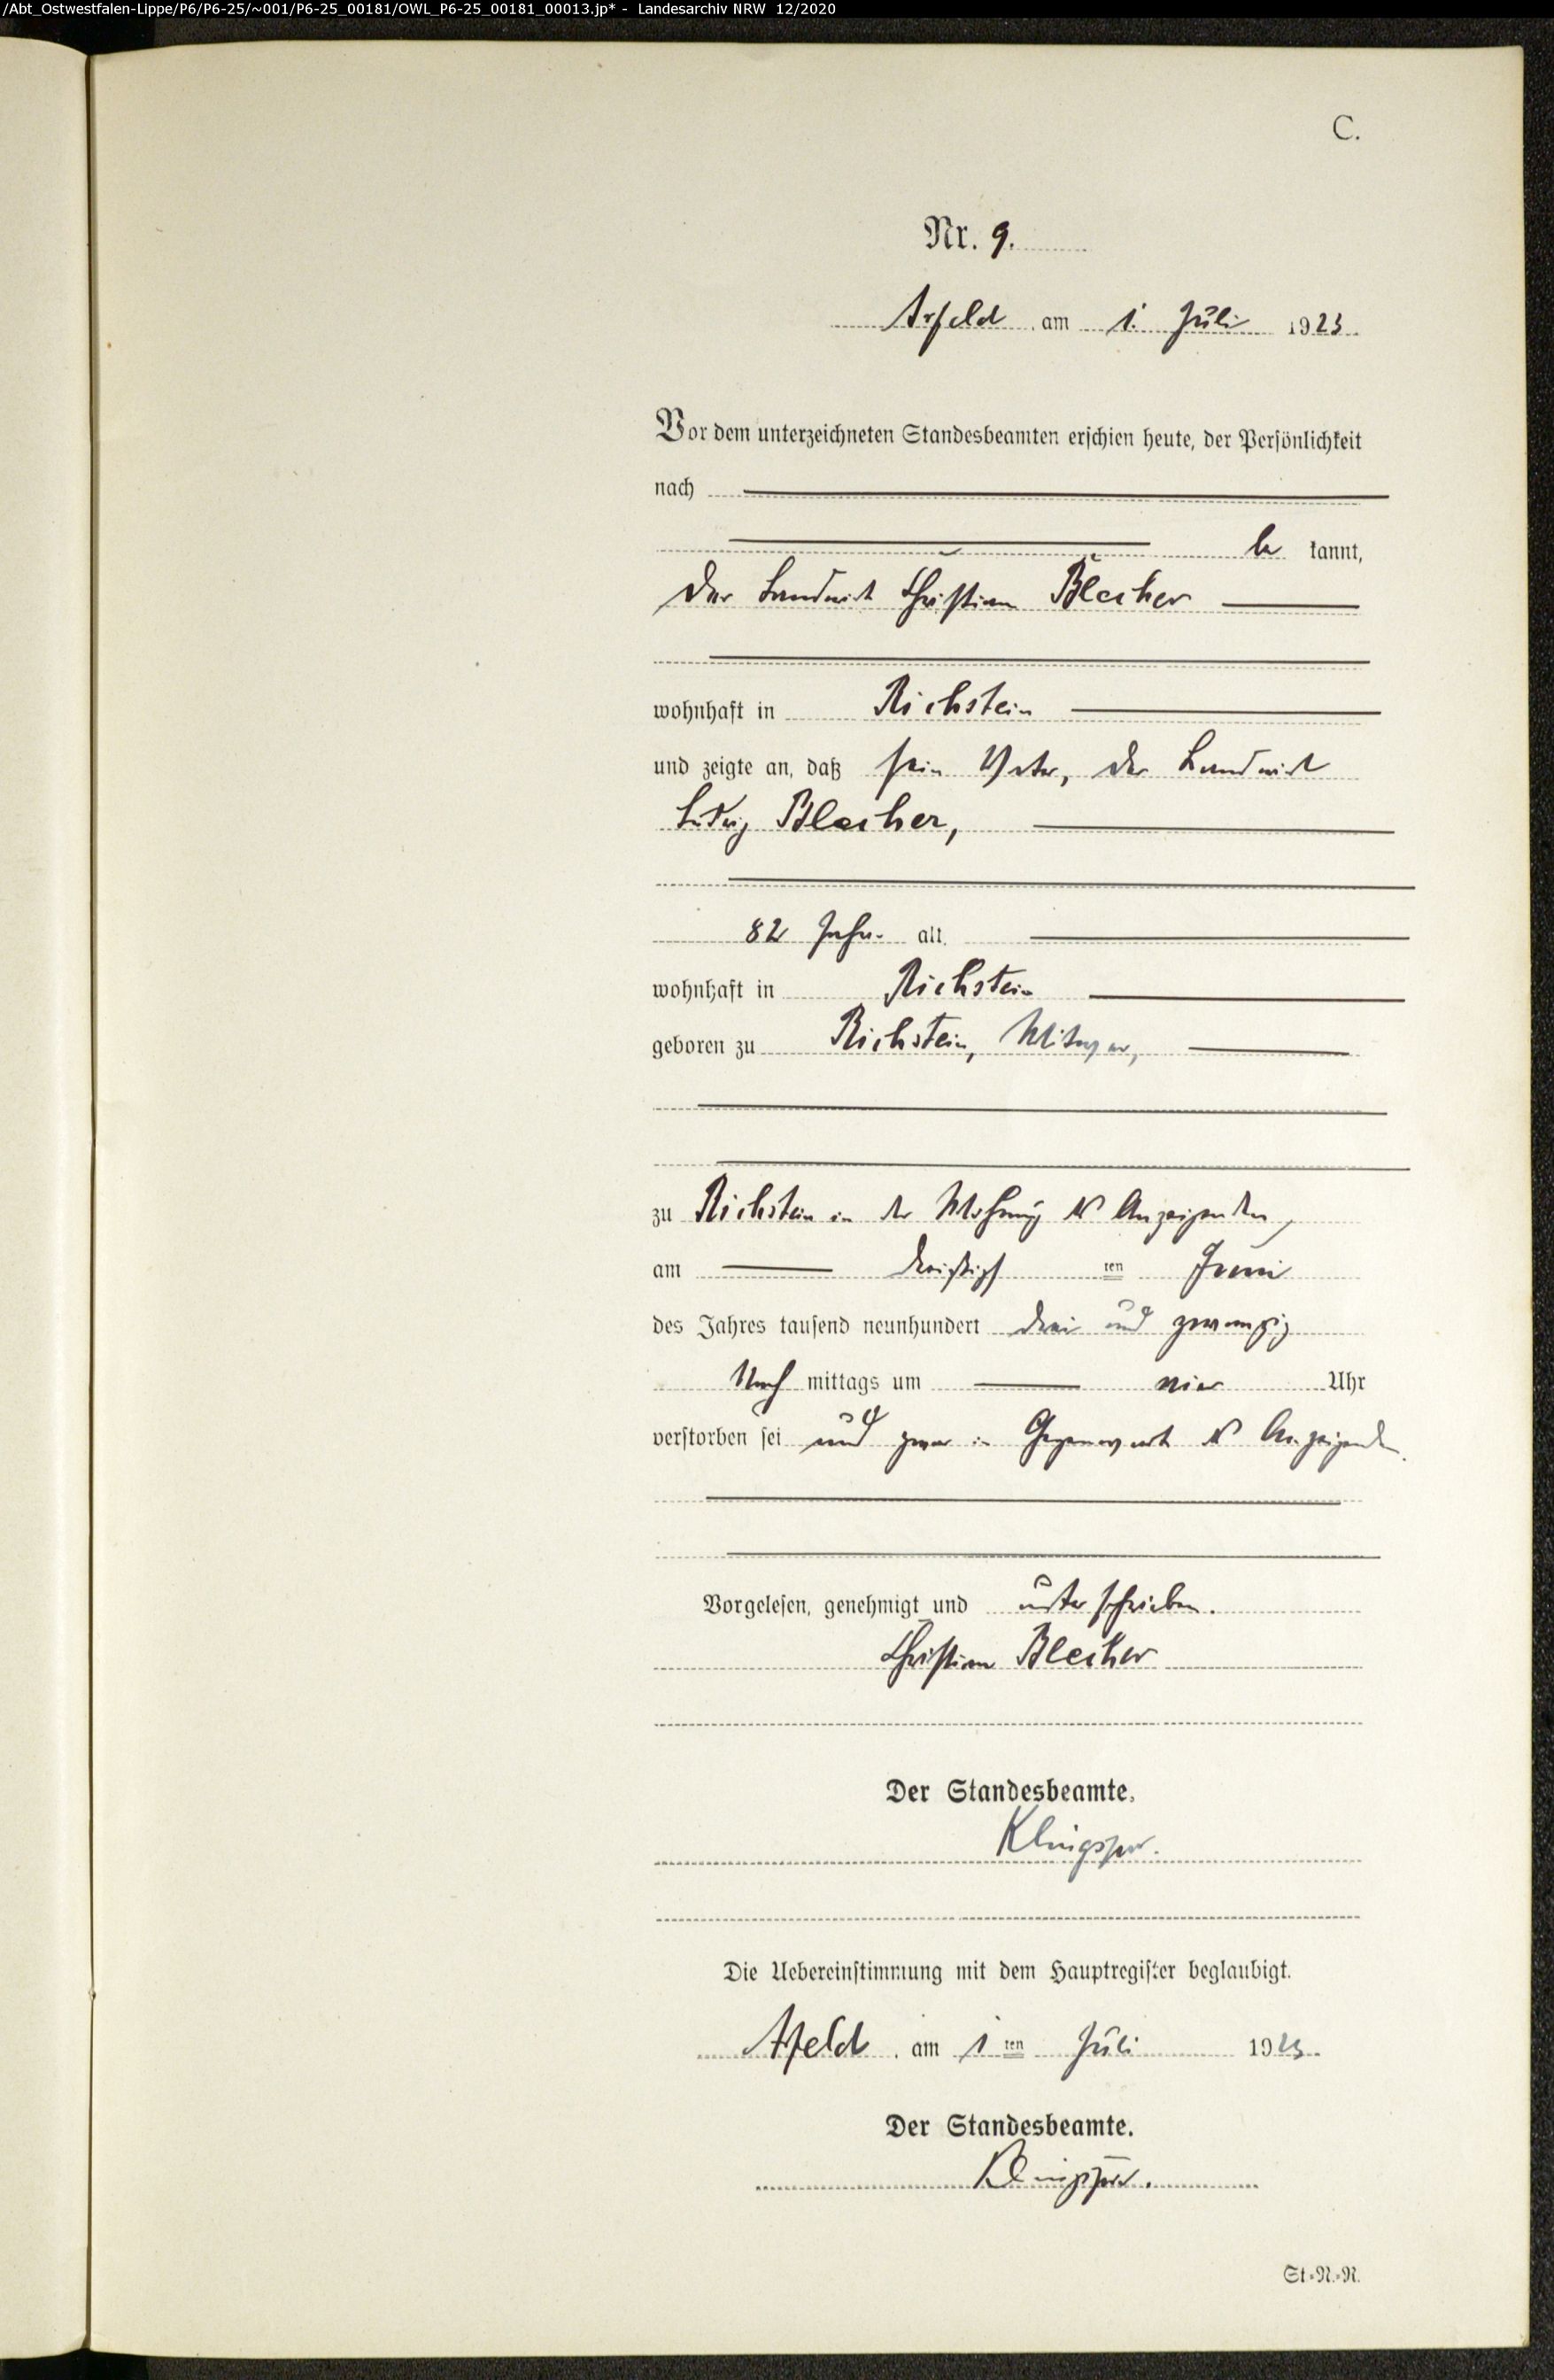 /Abt_Ostwestfalen-Lippe/P6/P6-25/~001/P6-25_00181/OWL_P6-25_00181_00013.jp* - Landesarchiv NRW 12/2020
C.
Nr. 9.
Arfeld, am 1. Juli 1923.
Vor dem unterzeichneten Standesbeamten erschien heute, der Persönlichkeit
nach
be kannt,
der Landwirt Christian Blecher
wohnhaft in Richstein
und zeigte an, daß sein Vater, der Landwirt
Ludwig Blecher,
82 Jahre alt,
wohnhaft in Richstein
geboren zu Richstein, Witwer,
zu Richstein in der Wohnung des Anzeigenden,
am dreißigsten Juni
des Jahres tausend neunhundert drei und zwanzig
Nach mittags um vier Uhr
verstorben sei und zwar in Gegenwart des Anzeigenden.
Vorgelesen, genehmigt und unterschrieben.
Christian Blecher
Der Standesbeamte.
Klingspor.
Die Uebereinstimmung mit dem Hauptregister beglaubigt.
Arfeld, am 1 ten Juli 1923.
Der Standesbeamte.
Klingspor.
St.-N.-R.